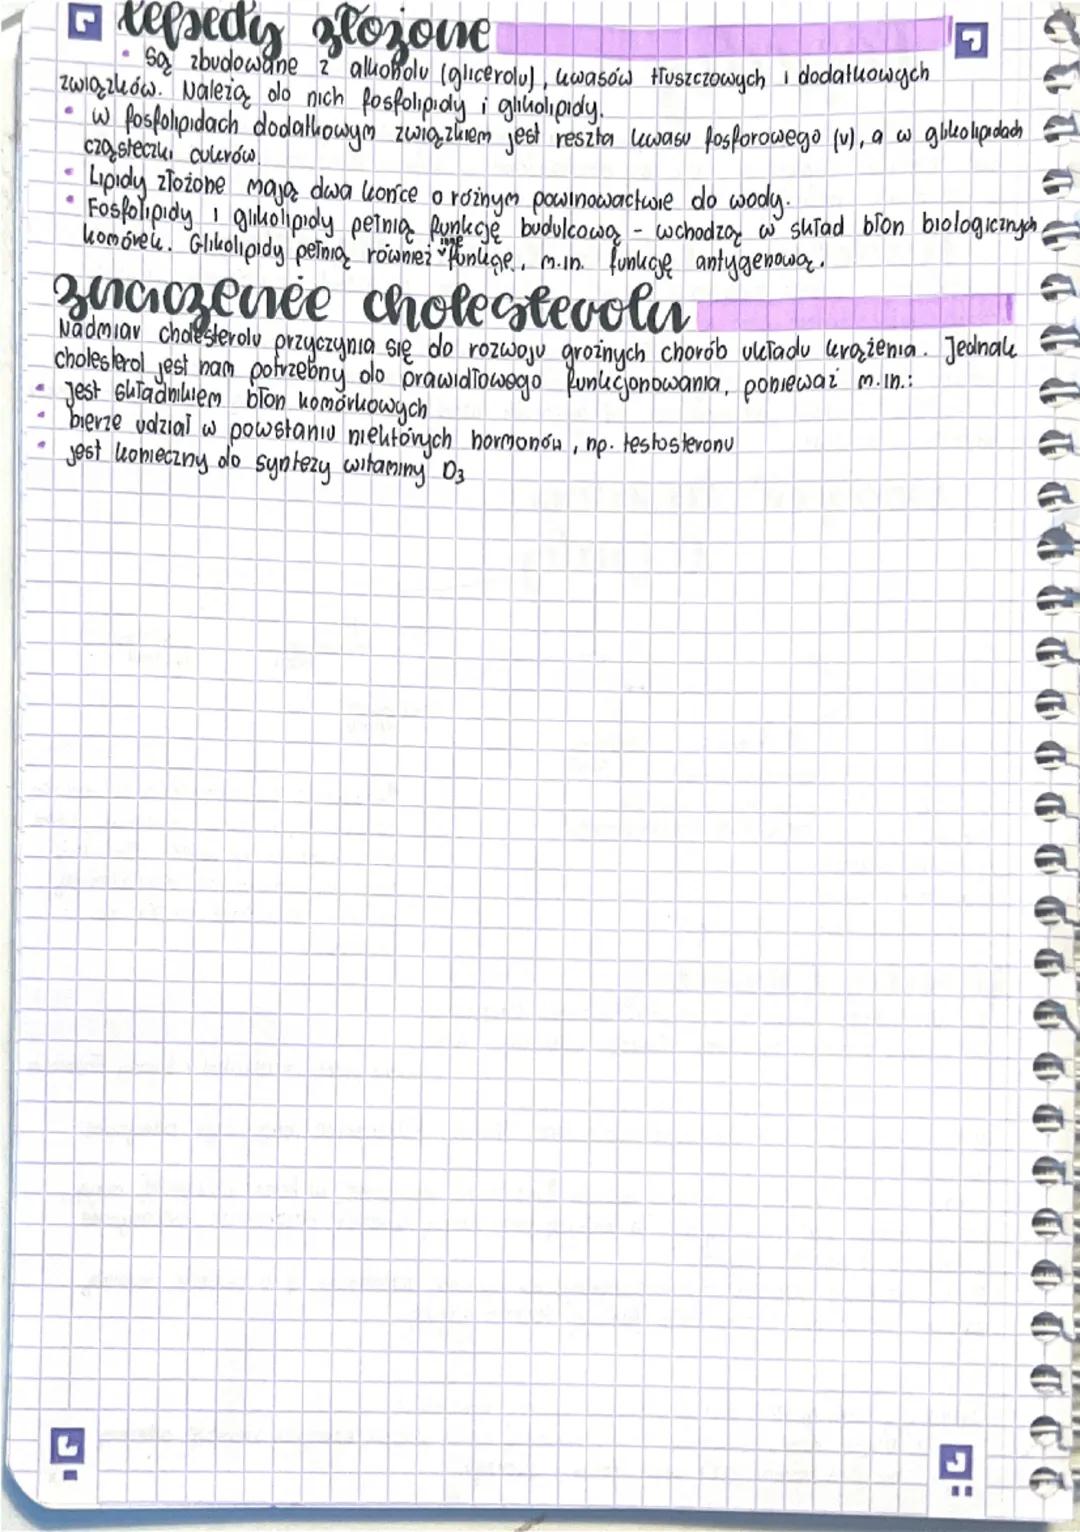 lipidy złożone
• są zbudowane z alkoholu (glicerolu), kwasów tłuszczowych i dodatkowych
związków. Należą do nich fosfolipidy i glikolipidy.
• w fosfolipidach dodatkowym związkiem jest reszta kwasu fosforowego (V), a w glikolipidach
cząsteczki cukrów.
• Lipidy złożone mają dwa końce o różnym powinowactwie do wody.
• Fosfolipidy i glikolipidy pełnią funkcję budulcową - wchodzą w skład błon biologicznych
komórek. Glikolipidy pełnią również inne funkcje, m.in. funkcję antygenową.
znaczenie cholesterolu
Nadmiar cholesterolu przyczynia się do rozwoju groźnych chorób układu krążenia. Jednak
cholesterol jest nam potrzebny do prawidłowego funkcjonowania, ponieważ m.in.:
• jest składnikiem błon komórkowych
• bierze udział w powstaniu niektórych hormonów, np. testosteronu
• jest konieczny do syntezy witaminy D3